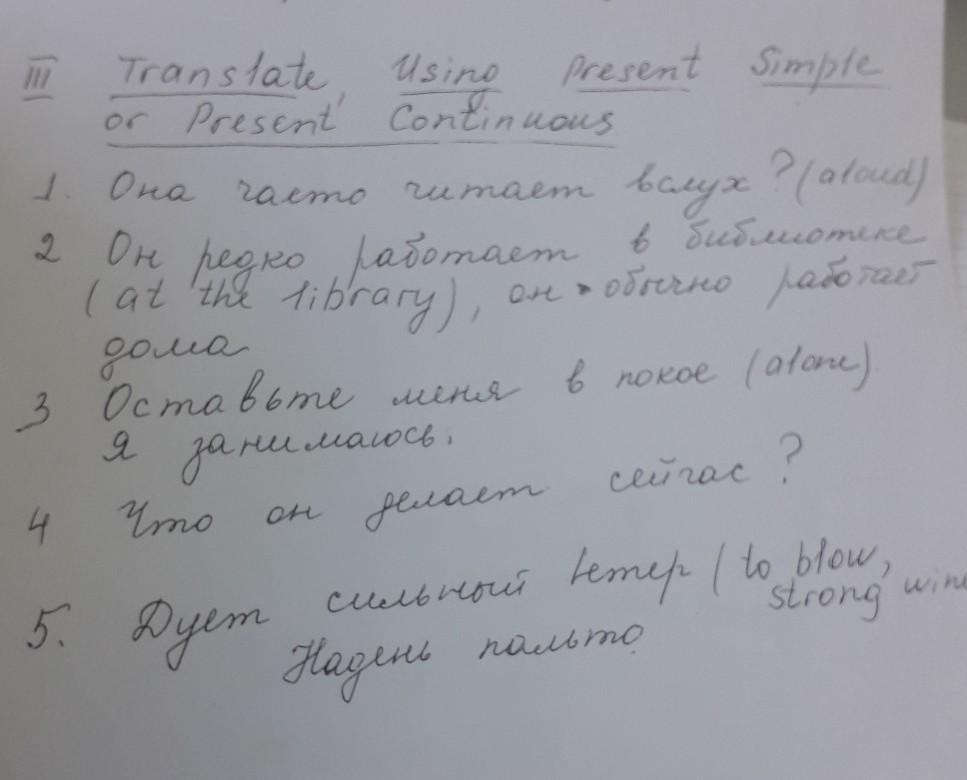 III Translate, Using Present Simple
or Present Continuous
1. Она часто читает вслух? (aloud)
2 Он редко работает в библиотеке
(at the library), он обычно работает
дома
3 Оставьте меня в покое (alone).
Я занимаюсь.
4 Что он делает сейчас?
5. Дует сильный ветер (to blow,
strong wind
Надень пальто.